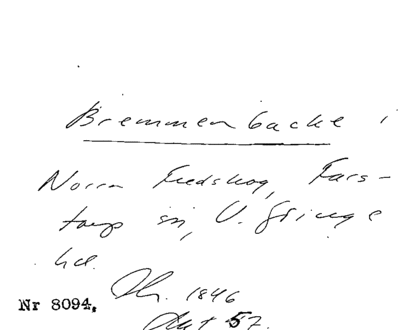 Bremmenbacke i
Norra Fredskog, Färs-
torp sn, V. Göinge
hd.
Nr 8094.
1846
57.